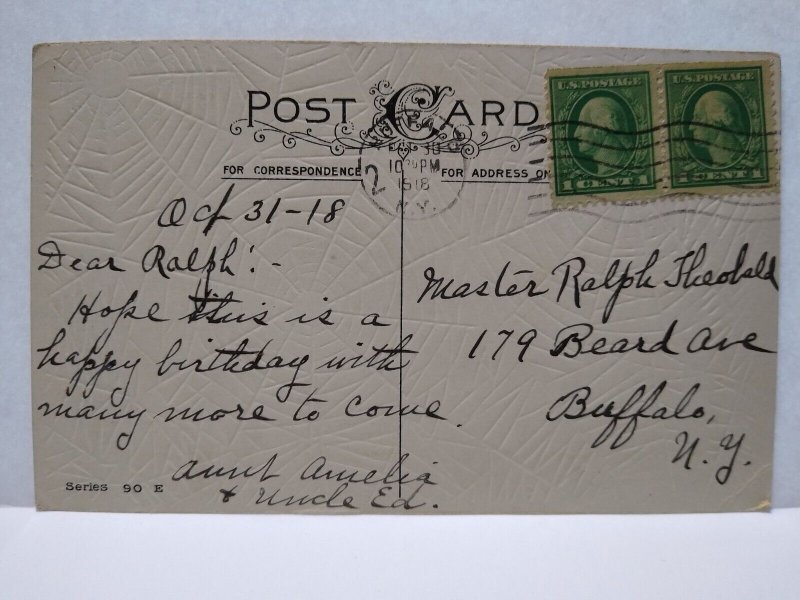 POST CARD
FOR CORRESPONDENCE
FOR ADDRESS ON
U.S. POSTAGE
1 CENT 1
U.S. POSTAGE
1 CENT 1
30
10 PM
1918
N.Y.
2
Oct 31-18
Dear Ralph:-
Hope this is a
happy birthday with
many more to come.
Aunt Amelia
& Uncle Ed.
Master Ralph Theobald
179 Beard Ave
Buffalo,
N.Y.
Series 90 E